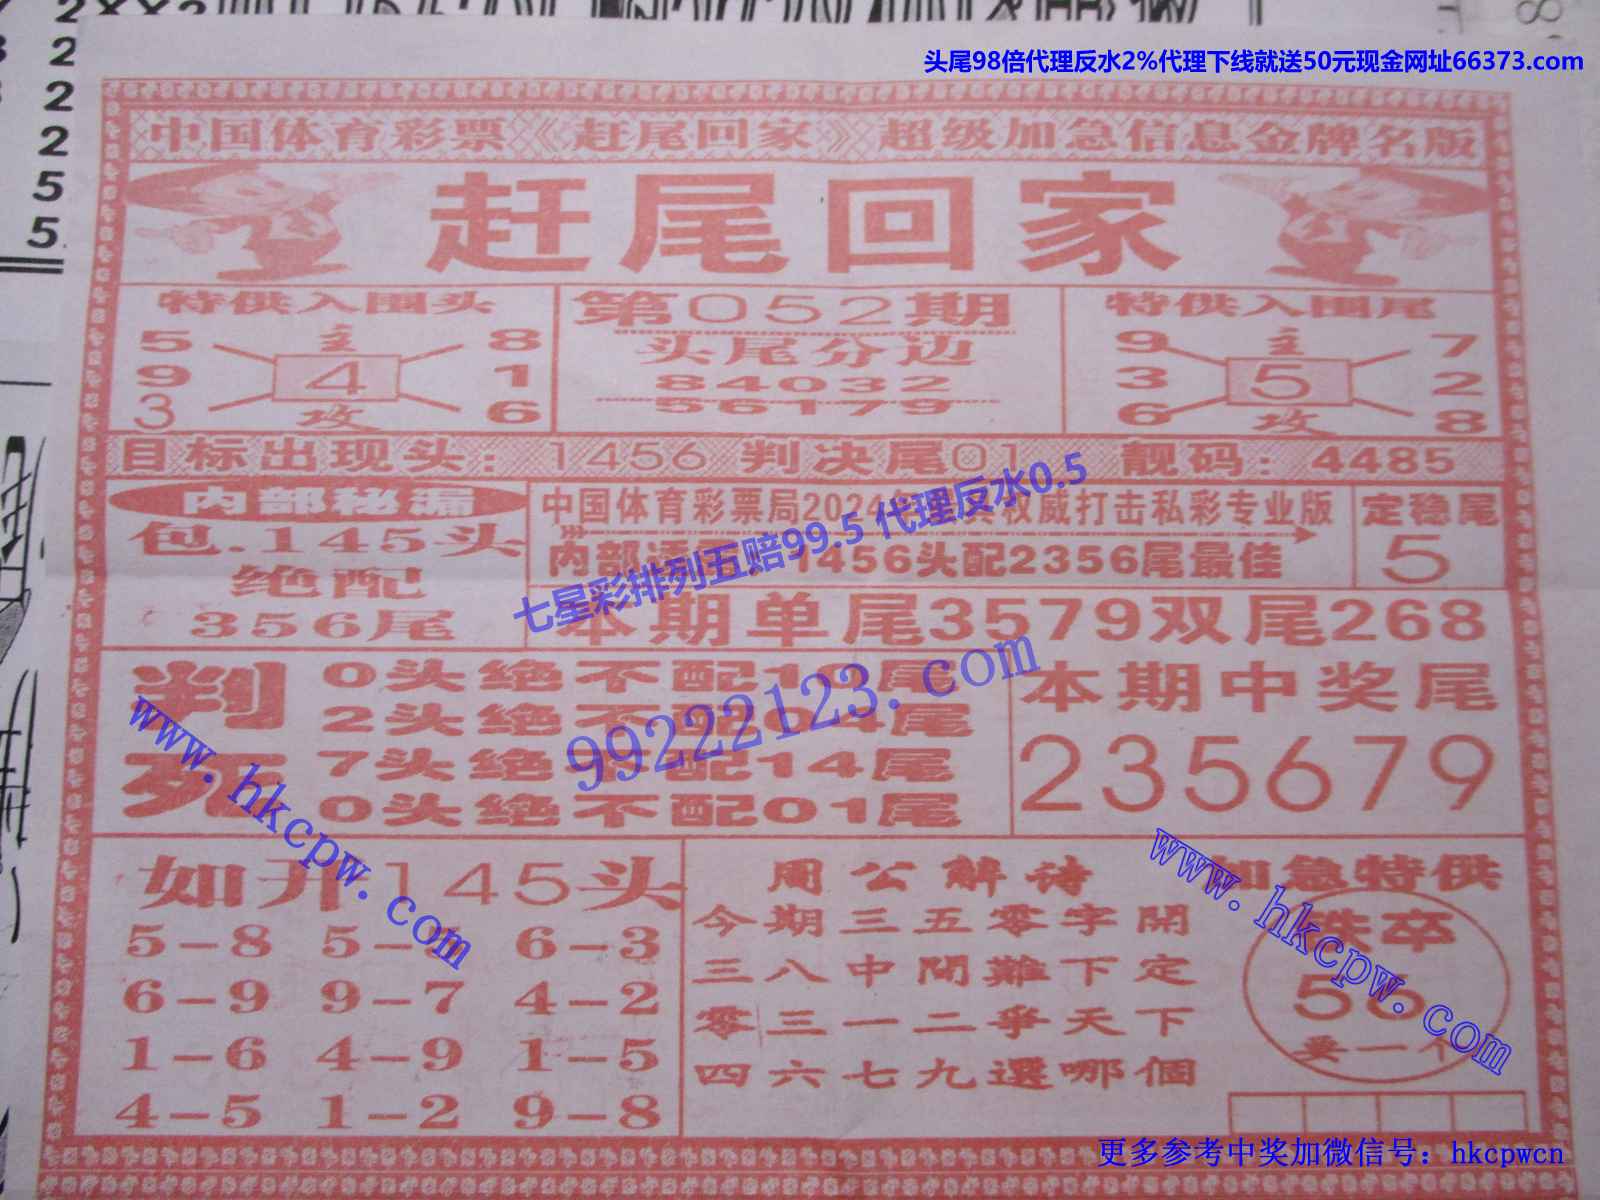 头尾98倍代理反水2%代理下线就送50元现金网址66373.com
2
2
2
5
5
中国体育彩票《赶尾回家》超级加急信息金牌名版
赶尾回家
特供入围头
5 主 8
9 4 1
3 攻 6
第052期
头尾分边
84032
56179
特供入围尾
9 主 7
3 5 2
6 攻 8
目标出现头：1456 判决尾01 靓码：4485
内部秘漏
包.145头
绝配
356尾
中国体育彩票局2024年 权威打击私彩专业版
内部 1456头配2356尾最佳
定稳尾
5
本期单尾3579双尾268
判死
0头绝不配 尾
2头绝不配 尾
7头绝不配14尾
0头绝不配01尾
本期中奖尾
235679
如开145头
5-8 5- 6-3
6-9 9-7 4-2
1-6 4-9 1-5
4-5 1-2 9-8
周公解诗
今期三五零字開
三八中間難下定
零三一二爭天下
四六七九選哪個
加急特供
卒
56
要一个
七星彩排列五赔99.5 代理反水0.5
99222123.com
www.hkcpw.com
www.hkcpw.com
更多参考中奖加微信号：hkcpwcn